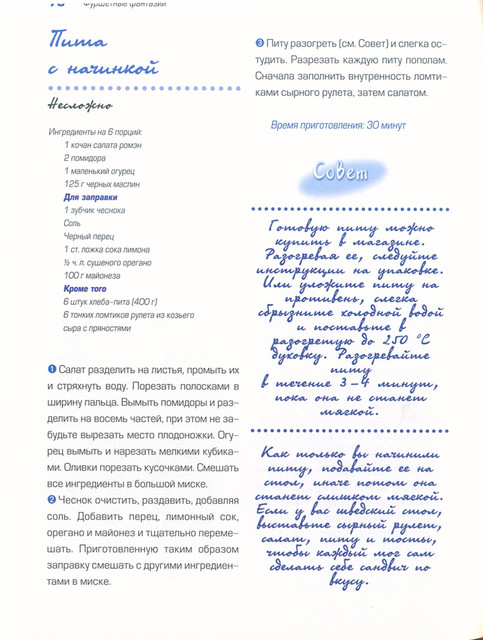 Фуршетные фантазии
Пита
с начинкой
Несложно
Ингредиенты на 6 порций:
1 кочан салата ромэн
2 помидора
1 маленький огурец
125 г черных маслин
Для заправки
1 зубчик чеснока
Соль
Черный перец
1 ст. ложка сока лимона
½ ч. л. сушеного орегано
100 г майонеза
Кроме того
6 штук хлеба-пита (400 г)
6 тонких ломтиков рулета из козьего
сыра с пряностями
1 Салат разделить на листья, промыть их
и стряхнуть воду. Порезать полосками в
ширину пальца. Вымыть помидоры и раз-
делить на восемь частей, при этом не за-
будьте вырезать место плодоножки. Огу-
рец вымыть и нарезать мелкими кубика-
ми. Оливки порезать кусочками. Смешать
все ингредиенты в большой миске.
2 Чеснок очистить, раздавить, добавляя
соль. Добавить перец, лимонный сок,
орегано и майонез и тщательно переме-
шать. Приготовленную таким образом
заправку смешать с другими ингредиен-
тами в миске.
3 Питу разогреть (см. Совет) и слегка ос-
тудить. Разрезать каждую питу пополам.
Сначала заполнить внутренность ломти-
ками сырного рулета, затем салатом.
Время приготовления: 30 минут
Совет
Готовую питу можно
купить в магазине.
Разогревая ее, следуйте
инструкции на упаковке.
Или уложите питу на
противень, слегка
сбрызните холодной водой
и поставьте в
разогретую до 250 °C
духовку. Разогревайте
питу
в течение 3–4 минут,
пока она не станет
мягкой.
Как только вы начинили
питу, подавайте ее на
стол, иначе потом она
станет слишком мягкой.
Если у вас шведский стол,
выставьте сырный рулет,
салат, питу и тосты,
чтобы каждый мог сам
сделать себе сандвич по
вкусу.